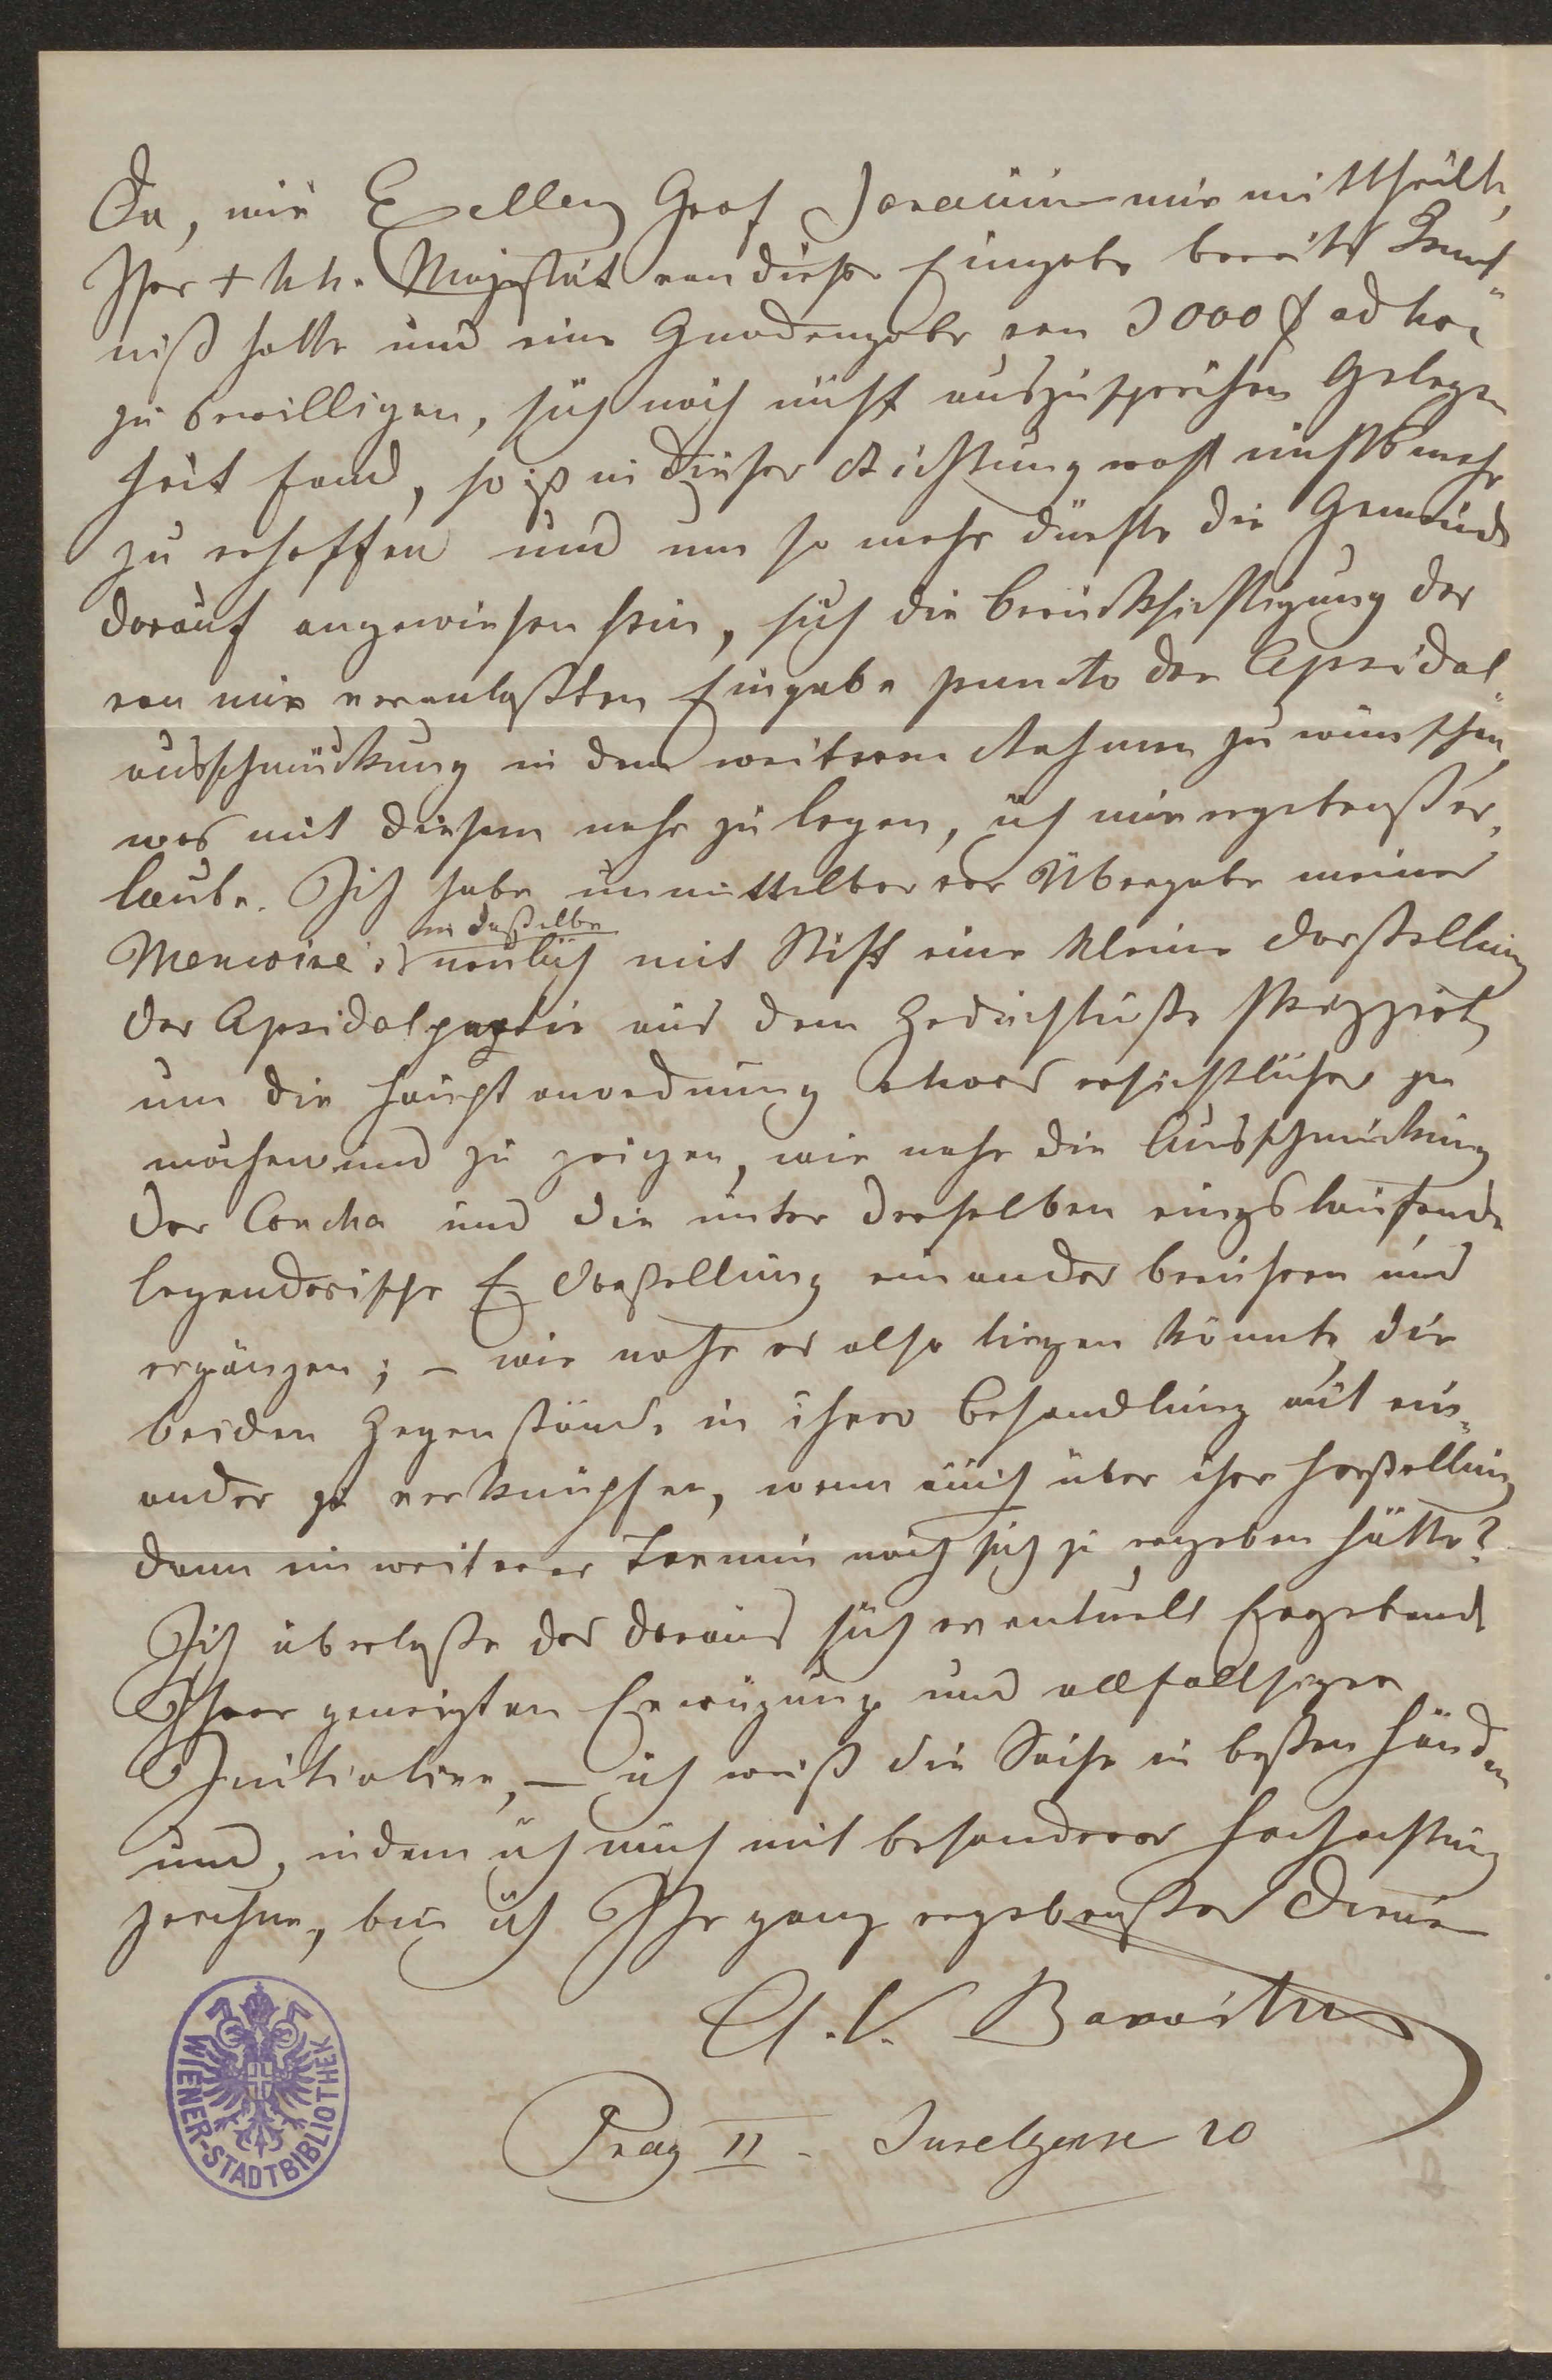 Da, wie Exzellenz Graf mir mittheilt,
Ihre k. k. Majestät von dieser Eingabe bereits Kennt=
niß hatte und eine Gnadengabe von 3000 f ad hoc
zu bewilligen, sich noch nicht auszusprechen Gelegen
heit fand, so ist in dieser Richtung wohl nichts mehr
zu erhoffen und um so mehr dürfte die Gemeinde
darauf angewiesen sein, sich die Berücksichtigung der
von mir veranlaßten Eingabe puncto der Apsidal=
ausschmückung in dem weiteren Rahmen zu wünschen,
was mit diesem nahe zu legen, ich mir ergebenst er,
laube. Ich habe unmittelbar vor Übergabe meines
in dasselbe
Memoire's neulich mit Stift eine kleine Darstellung
der Apsidalpartie aus dem Gedächtniße skizzirt,
um die Hauptanordnung etwas ersichtlicher zu
machen und zu zeigen, wie nahe die Ausschmückung
der Concha und die unter derselben ringslaufende
legendarische Darstellung einander berühren und
ergänzen; – wie nahe es also liegen könnte, die
beiden Gegenstände in ihrer Behandlung mit ein=
ander zu verknüpfen, wenn auch über ihre Herstellung
dann ein weiterer Termin noch sich zu ergeben hätte?
Ich überlaße das daraus sich eventuell Ergebende
Ihrer geneigten Erwägung und allfallsigen
Initiative, – ich weiß die Sache in besten Händen
und, indem ich mich mit besonderer Hochachtung
zeichne, bin ich Ihr ganz ergebenster Diener
A. V. Barvitius
Prag II. Inselgasse 20
WIENER-STADTBIBLIOTHEK